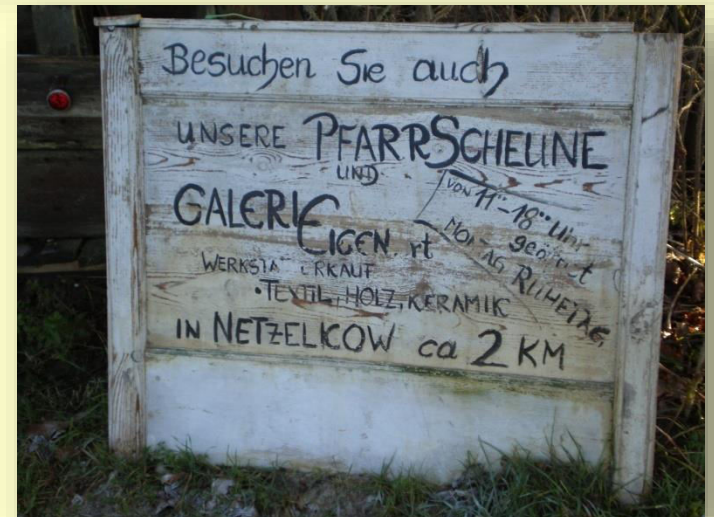 Besuchen Sie auch
UNSERE PFARRSCHEUNE
UND
GALERIE EIGEN
VON 11°°-18°° Uhr
geöffnet
MONTAG RUHETAG
WERKSTA
TEXTIL, HOLZ, KERAMIK
IN NETZELKOW ca 2 KM